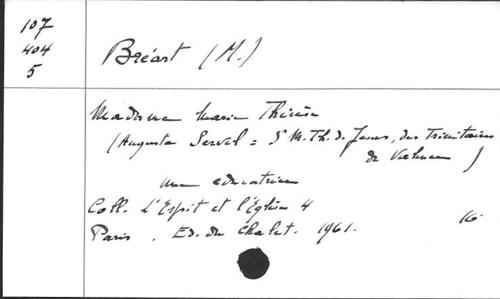 107
404
5
Bréart (M.)
Madame Marie Thérèse
(Augusta Servel = Sr M. Th. de Jésus, des Trinitaires
de Valence)
une educatrice
Coll. L'Esprit et l'Eglise 4
Paris. Ed. du Chalet. 1961. 16